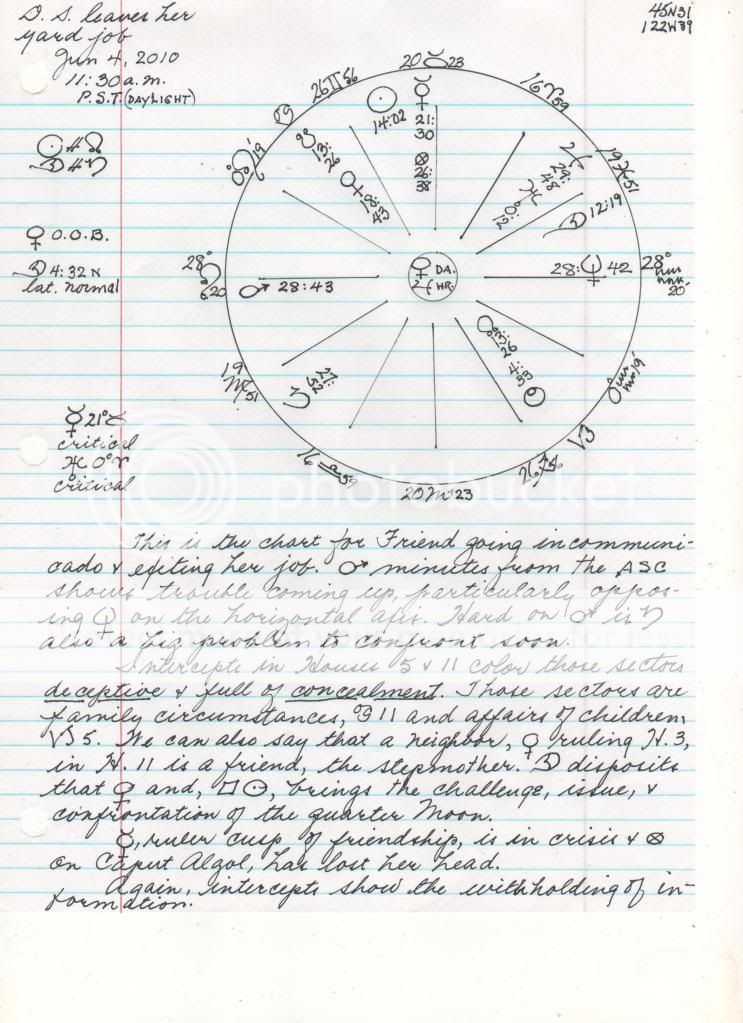 D. S. leaves her
yard job
Jun 4, 2010
11:30 a.m.
P.S.T. (DAYLIGHT)
45N31
122W39
☉ # ☊
☽ # ♄
♀ O.O.B.
☽ 4:32 N
lat. normal
☿ 21° ♉
critical
♃ 0° ♈
critical
20 ♉ 23
16 ♈ 59
19 ♓ 51
28° ♒ 20
♒ 19
♑
26 ♐ 56
20 ♏ 23
16 ♎ 59
19 ♍ 51
28° ♌ 20
♌ 19
♋
26 ♊ 56
☉ 14:02
☿ 21:30
⊗ 26:38
♀ 18:43
☽ 12:19
28: 42
♂ 28:43
♀ DA.
♃ HR.
photobucket
This is the chart for Friend going incommuni-
cado & exiting her job. ♂ minutes from the ASC
shows trouble coming up, particularly oppos-
ing on the horizontal axis. Hard on ♂ is ♄
also a big problem to confront soon.
Intercepts in Houses 5 & 11 color those sectors
deceptive & full of concealment. Those sectors are
family circumstances, ♋ 11 and affairs of children,
♑ 5. We can also say that a neighbor, ♀ ruling H. 3,
in H. 11 is a friend, the stepmother. ☽ disposits
that ♀ and, □ ☉, brings the challenge, issue, &
confrontation of the quarter Moon.
☿, ruler cusp of friendship, is in crisis & ⊗
on Caput Algol, has lost her head.
Again, intercepts show the withholding of in-
formation.